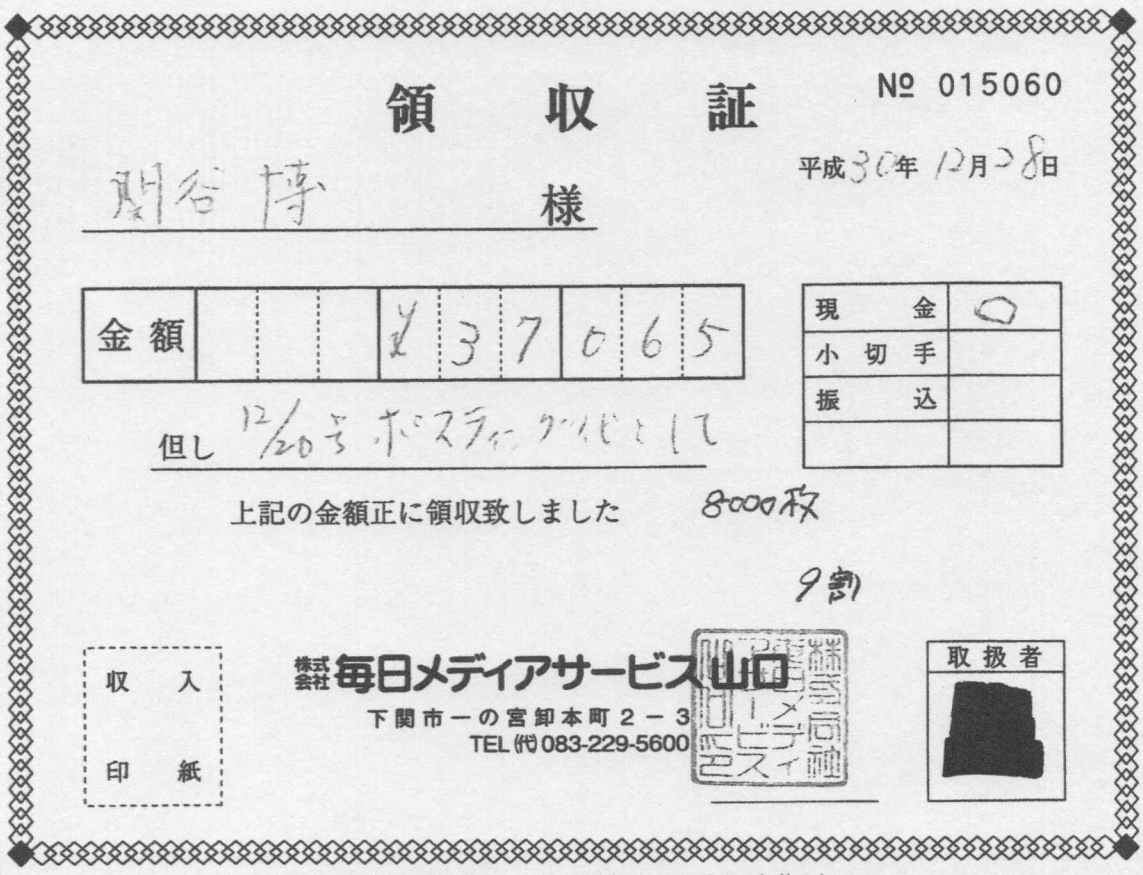 領収証
№ 015060
平成30年12月28日
関谷 博 様
金額 ¥37065
現金 ○
小切手
振込
但し 12/20号 ポスティング代として
上記の金額正に領収致しました
8000枚
9割
収入
印紙
株式会社 毎日メディアサービス山口
下関市一の宮卸本町2-3
TEL(代)083-229-5600
取扱者